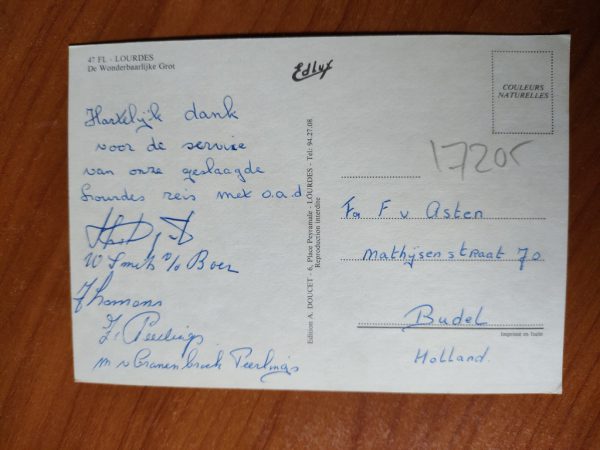 47 FL - LOURDES
De Wonderbaarlijke Grot
Edlux
COULEURS
NATURELLES
Hartelijk dank
voor de service
van onze geslaagde
Lourdes reis met o.a.d
W Smets v/d Boer
J. Peerlings
m v Cranenbroek Peerlings
Edition A. DOUCET - 6, Place Peyramale - LOURDES - Tél: 94.27.08
Reproduction interdite
17205
Fa F v Asten
Mathijsenstraat 70
Budel
Imprimé en Italie
Holland.